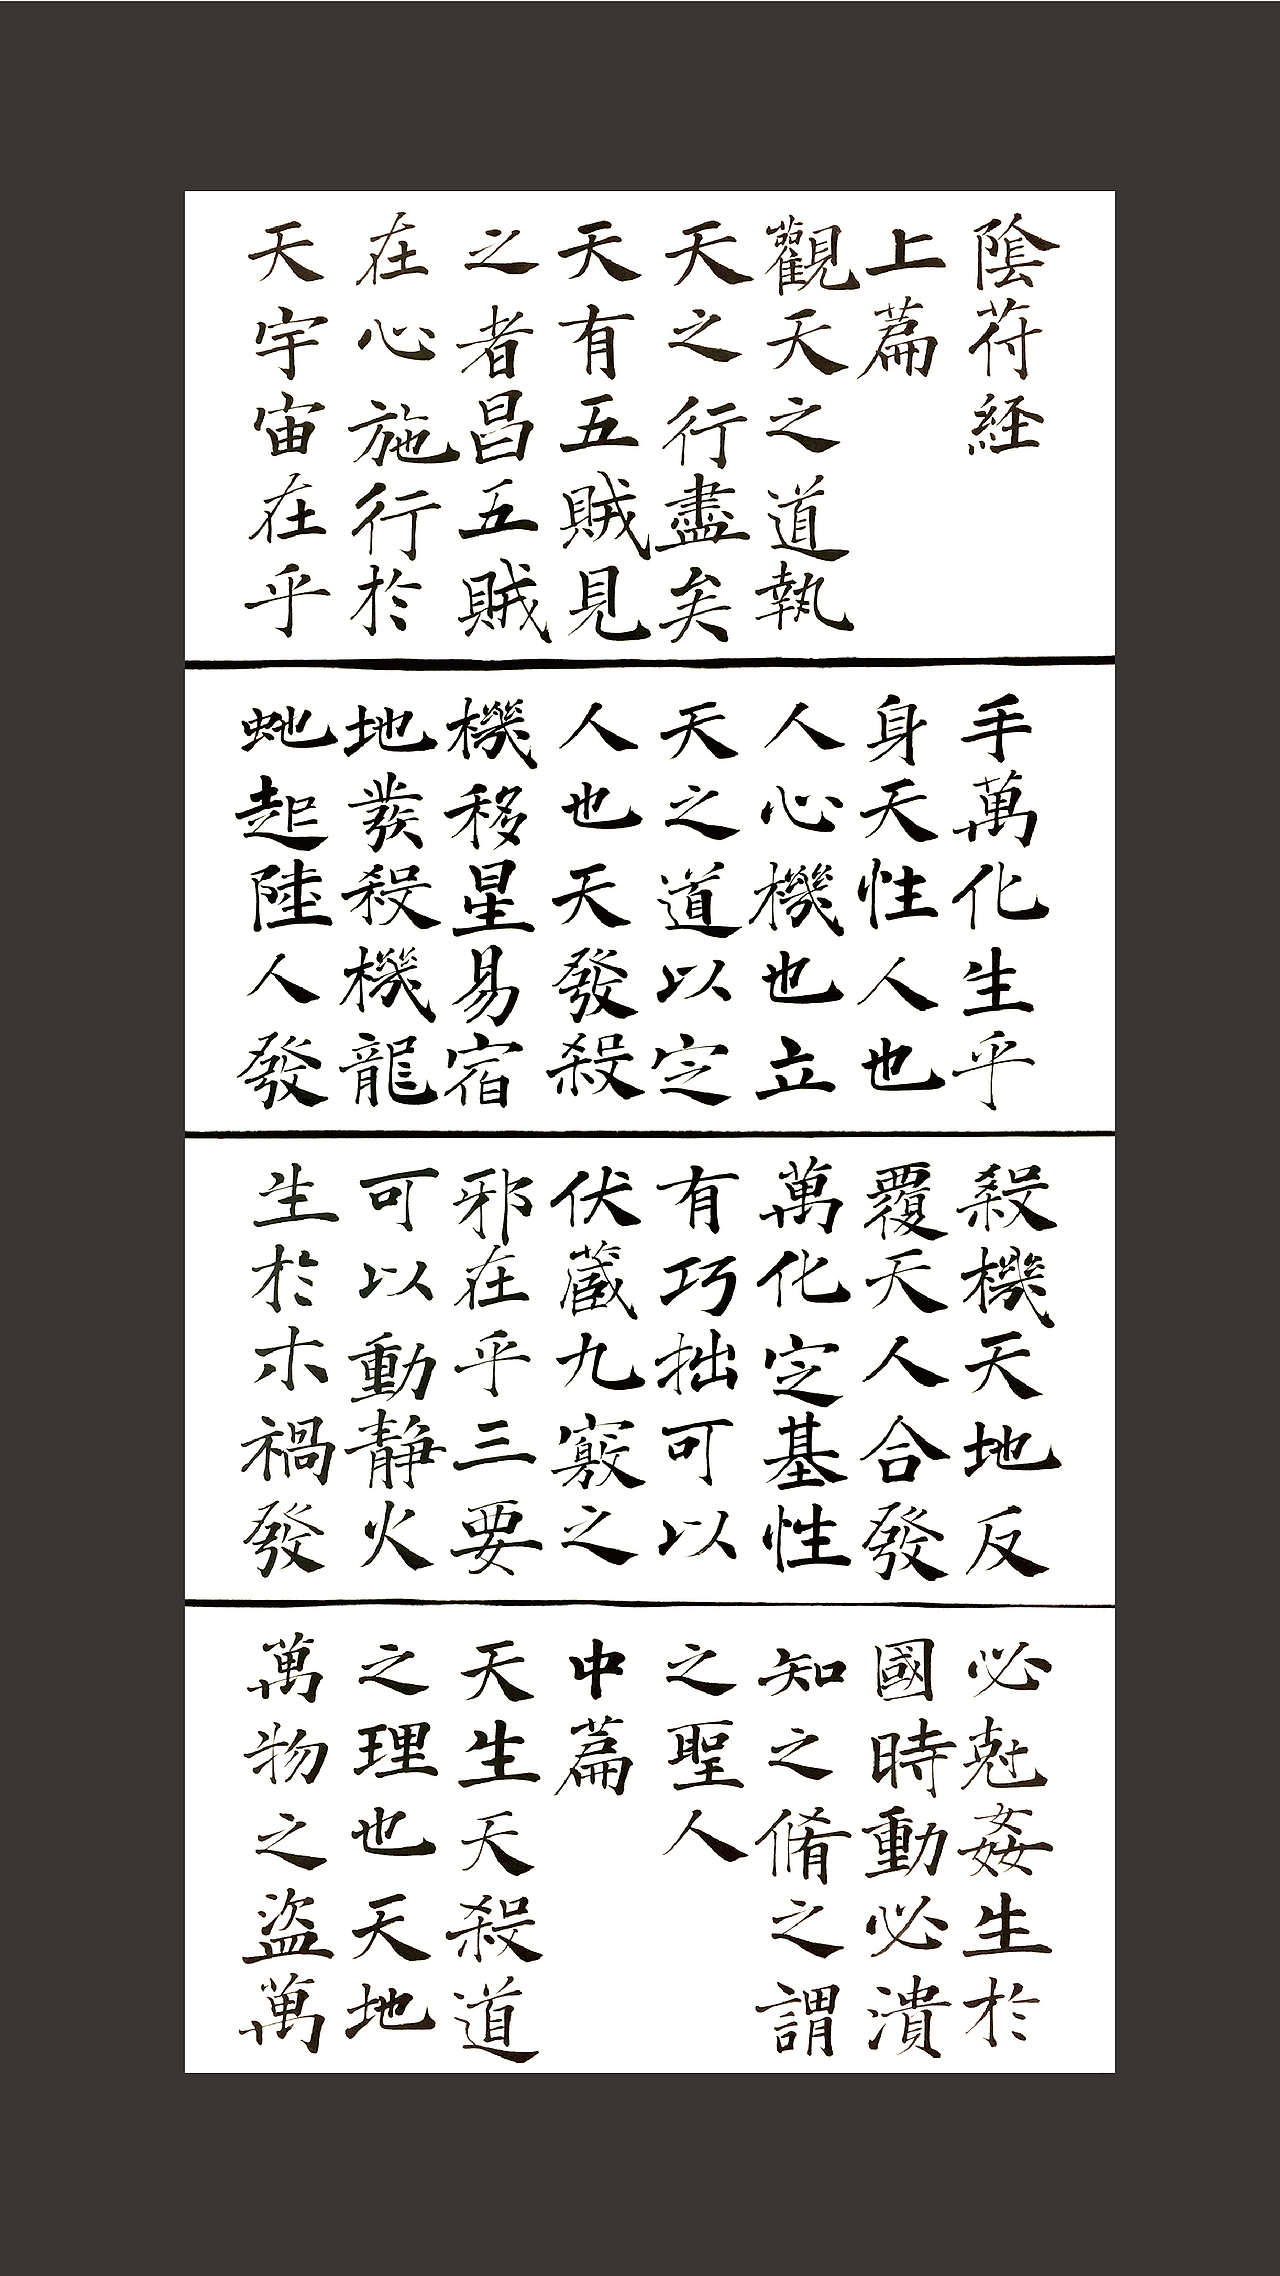 陰苻経
上萹
觀天之道執
天之行盡矣
天有五賊見
之者昌五賊
在心施行於
天宇宙在乎
手萬化生乎
身天性人也
人心機也立
天之道以定
人也天發殺
機移星易宿
地發殺機龍
虵起陸人發
殺機天地反
覆天人合發
萬化定基性
有巧拙可以
伏蔵九竅之
邪在乎三要
可以動静火
生於木禍發
必尅姦生於
國時動必潰
知之脩之謂
之聖人
中萹
天生天殺道
之理也天地
萬物之盜萬